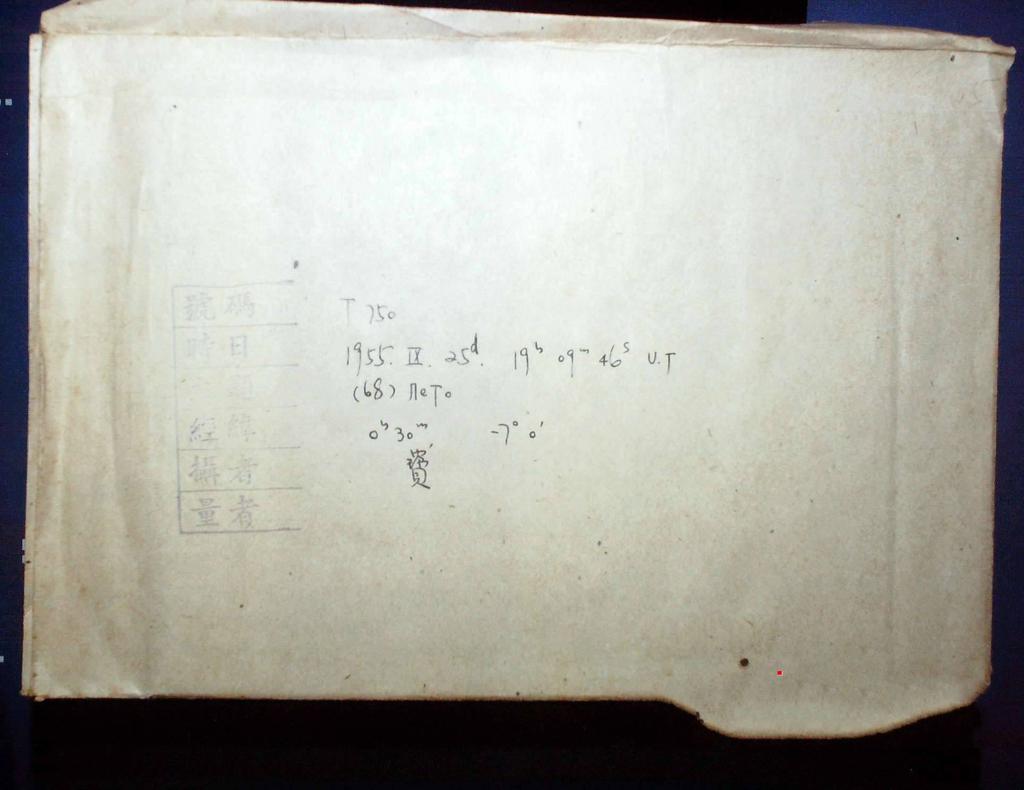 號碼 T 750
時日 1955. IX. 25ᵈ. 19ʰ 09ᵐ 46ˢ U.T
(68) Лето
經緯 0ʰ 30ᵐ, -7° 0'
攝者
量者